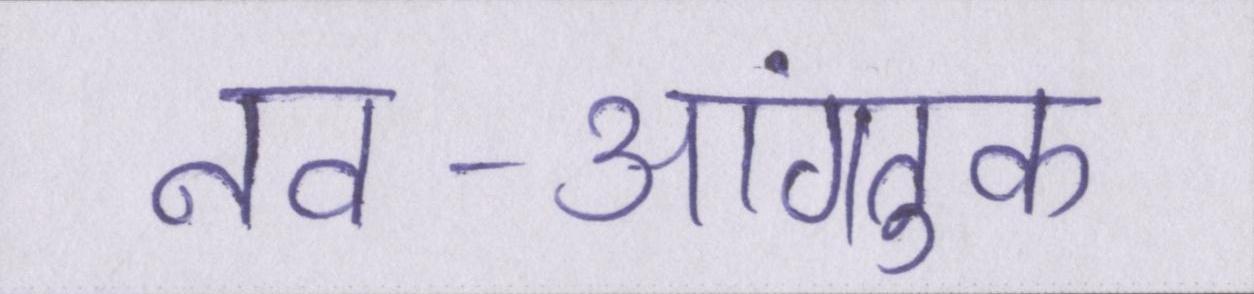 नव-आंगतुक